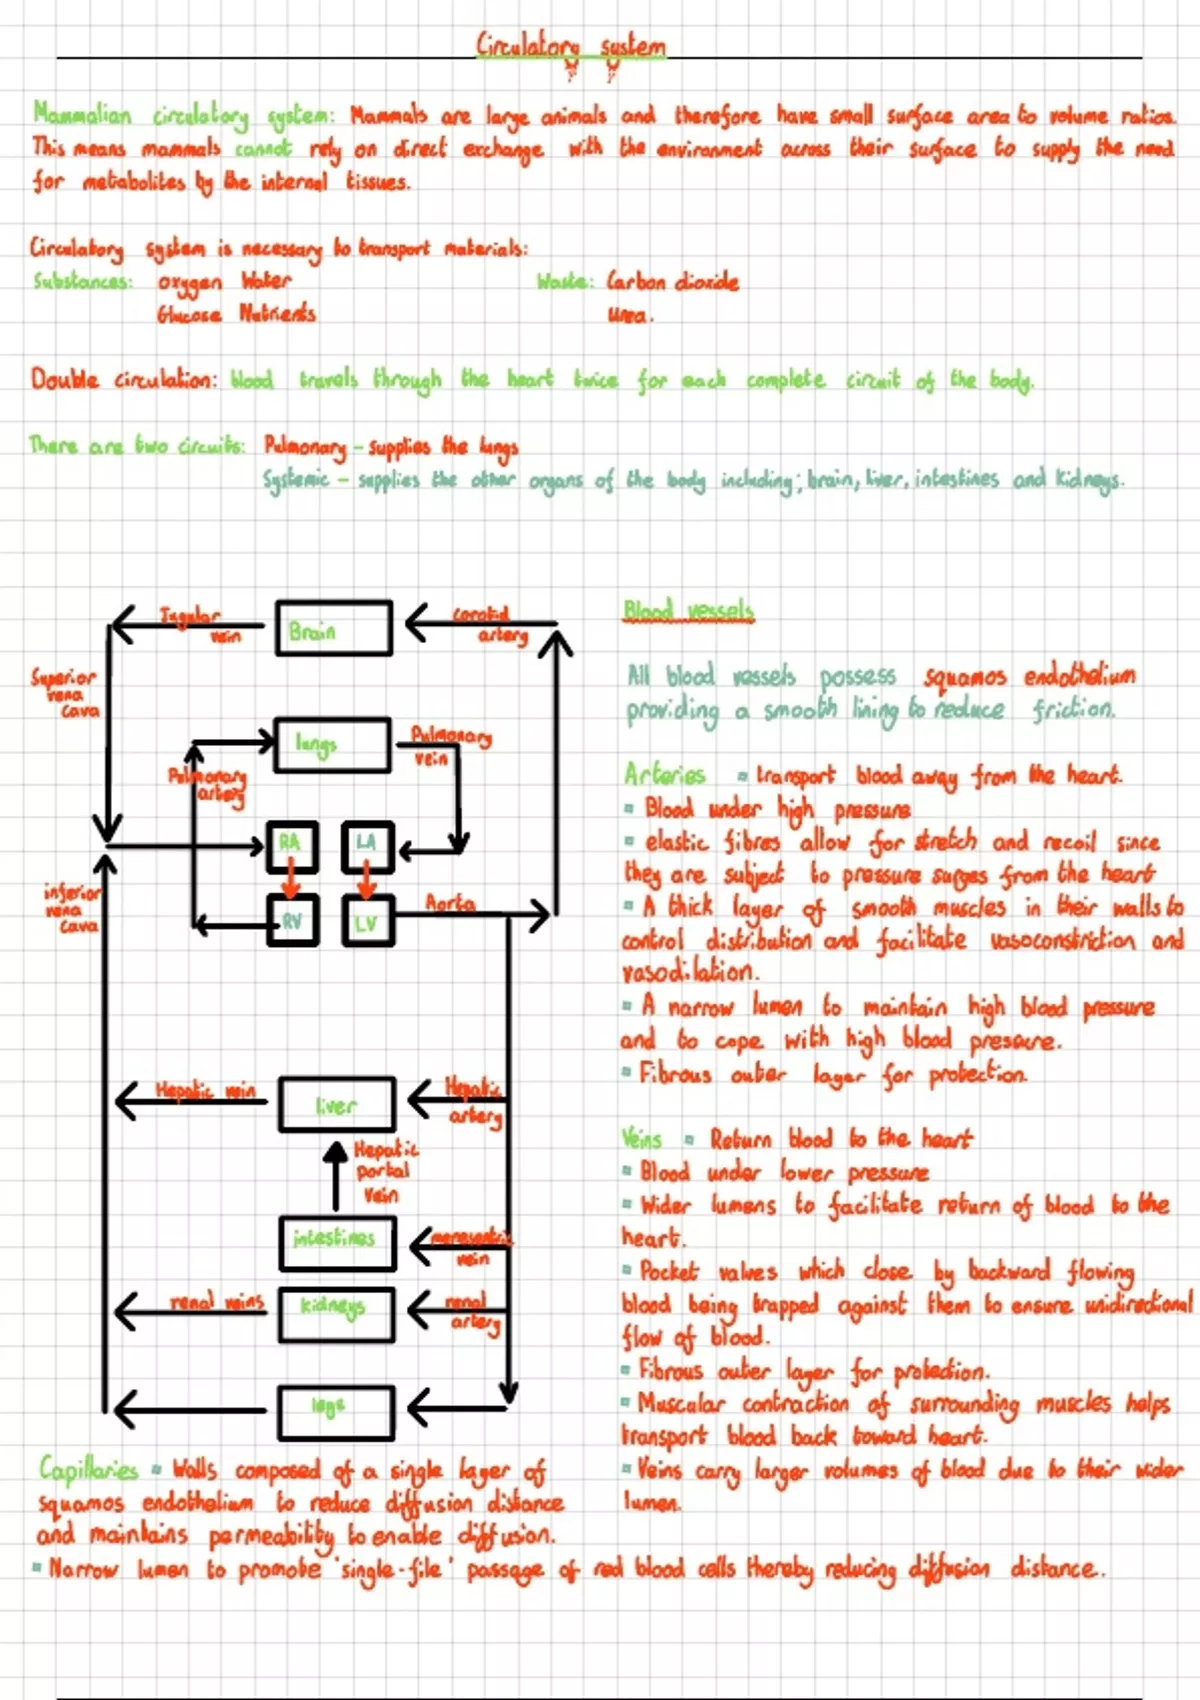 Circulatory system
Mammalian circulatory system: Mammals are large animals and therefore have small surface area to volume ratios.
This means mammals cannot rely on direct exchange with the environment across their surface to supply the need
for metabolites by the internal tissues.
Circulatory system is necessary to transport materials:
Substances: oxygen Water
Waste: Carbon dioxide
Glucose Nutrients
Urea.
Double circulation: blood travels through the heart twice for each complete circuit of the body.
There are two circuits: Pulmonary - supplies the lungs
Systemic - supplies the other organs of the body including; brain, liver, intestines and kidneys.
Jugular
vein
Brain
Carotid
artery
Superior
vena
cava
lungs
Pulmonary
vein
Pulmonary
artery
RA
LA
inferior
vena
cava
RV
LV
Aorta
Hepatic vein
liver
Hepatic
artery
Hepatic
portal
vein
intestines
mesenteric
vein
renal veins
kidneys
renal
artery
legs
Blood vessels
All blood vessels possess squamos endothelium
providing a smooth lining to reduce friction.
Arteries ▪ transport blood away from the heart.
▪ Blood under high pressure
▪ elastic fibres allow for stretch and recoil since
they are subject to pressure surges from the heart
▪ A thick layer of smooth muscles in their walls to
control distribution and facilitate vasoconstriction and
vasodilation.
▪ A narrow lumen to maintain high blood pressure
and to cope with high blood pressure.
▪ Fibrous outer layer for protection.
Veins ▪ Return blood to the heart
▪ Blood under lower pressure
▪ Wider lumens to facilitate return of blood to the
heart.
▪ Pocket valves which close by backward flowing
blood being trapped against them to ensure unidirectional
flow of blood.
▪ Fibrous outer layer for protection.
▪ Muscular contraction of surrounding muscles helps
transport blood back toward heart.
▪ Veins carry larger volumes of blood due to their wider
lumen.
Capillaries ▪ Walls composed of a single layer of
squamos endothelium to reduce diffusion distance
and maintains permeability to enable diffusion.
▪ Narrow lumen to promote 'single-file' passage of red blood cells thereby reducing diffusion distance.